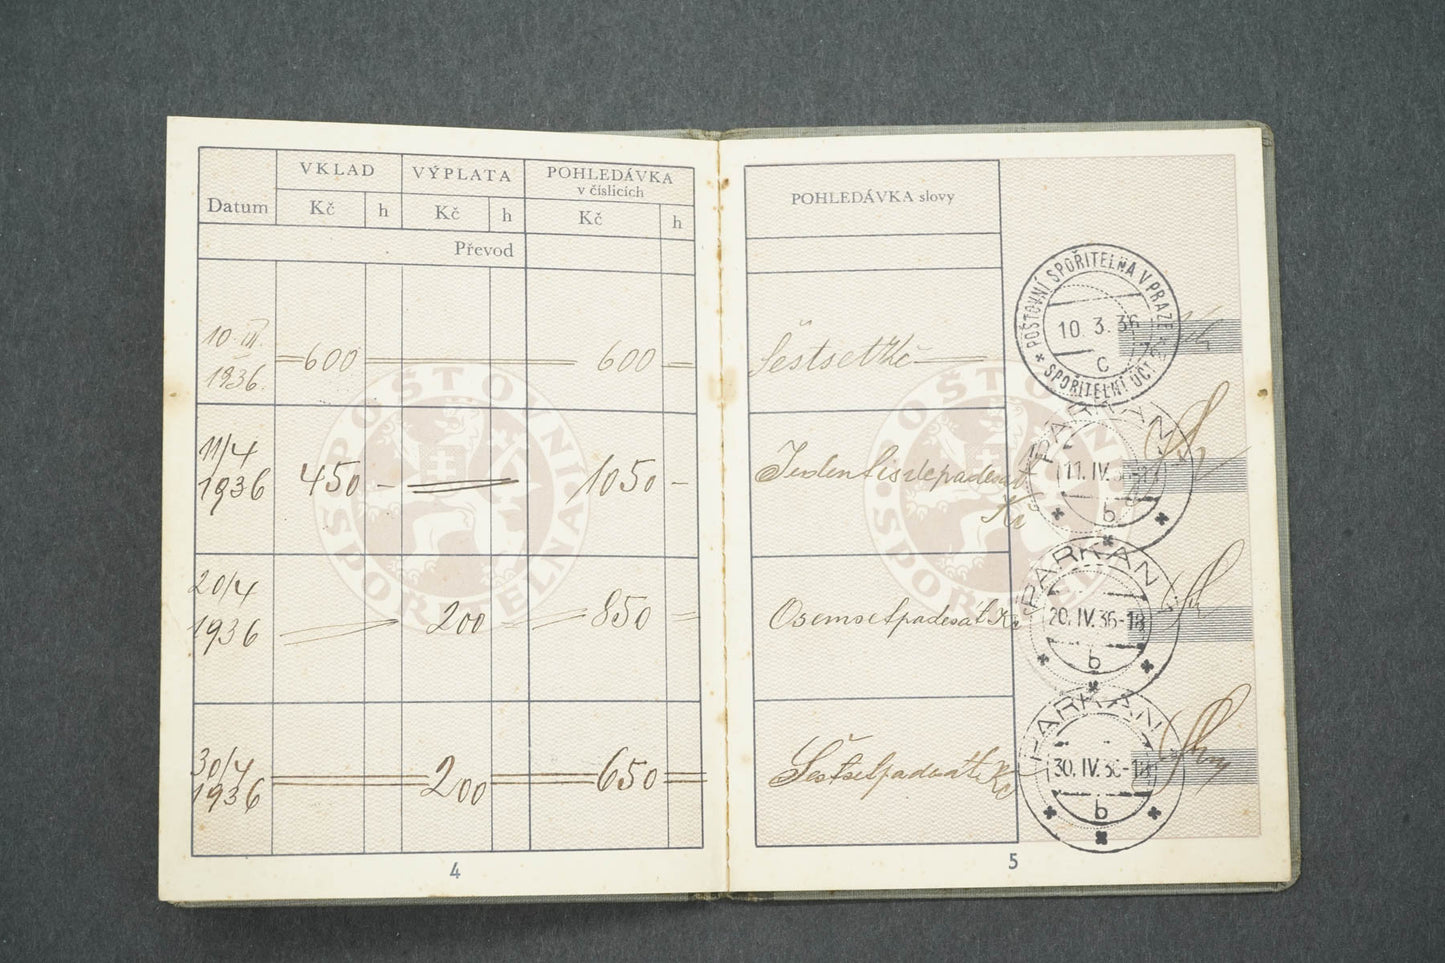 VKLAD VÝPLATA POHLEDÁVKA
v číslicích
Datum Kč h Kč h Kč h
Převod
10. III. 600 600
1936.
11/4 450 - 1050 -
1936
20/4 200 850
1936
30/4 200 650
1936
POŠTOVNÍ SPOŘITELNA
4
POHLEDÁVKA slovy
Šestset Kč
Jedentisícpadesát
Kč
Osemsetpadesát Kč
Šestsetpadesát Kč
POŠTOVNÍ SPOŘITELNA
POŠTOVNÍ SPOŘITELNA V PRAZE
10. 3. 36
C
SPOŘITELNÍ ÚČT.
PARKAN
11. IV. 36-18
b
PARKAN
20. IV. 36-18
b
PARKAN
30. IV. 36-18
b
5